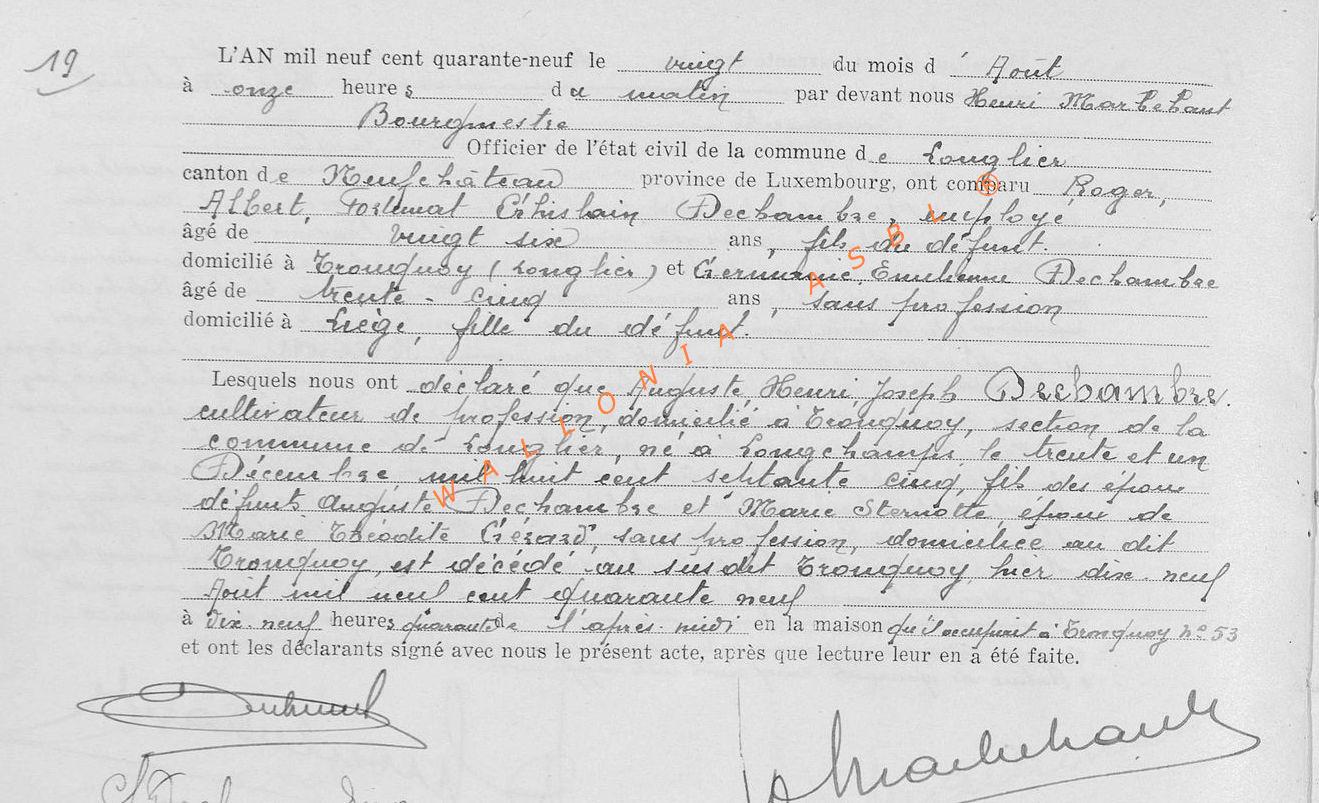 19
L'AN mil neuf cent quarante-neuf le vingt du mois d' Août
à onze heures du matin par devant nous Henri
Bourgmestre
Officier de l'état civil de la commune de Longlier
canton de Neufchâteau province de Luxembourg, ont comparu Roger,
Albert, Fortunat Ghislain Dechambre, employé
âgé de vingt six ans, fils du défunt.
domicilié à Tronquoy (Longlier) et Germaine Emilienne Dechambre
âgé de trente-cinq ans, sans profession
domicilié à Liège, fille du défunt.
Lesquels nous ont déclaré que Auguste, Henri, Joseph Dechambre.
cultivateur de profession, domicilié à Tronquoy, section de la
commune de Longlier, né à Longchamps, le trente et un
Décembre, mil huit cent septante cinq, fils des époux
défunts Auguste Dechambre et Marie Sternotte, époux de
Marie Gérard, sans profession, domiciliée au dit
Tronquoy, est décédé au susdit Tronquoy, hier dix-neuf
Août mil neuf cent quarante neuf
à dix-neuf heures quarante de l'après-midi en la maison qu'il occupait à Tronquoy n° 53
et ont les déclarants signé avec nous le présent acte, après que lecture leur en a été faite.
WALLONIA ASBL ©